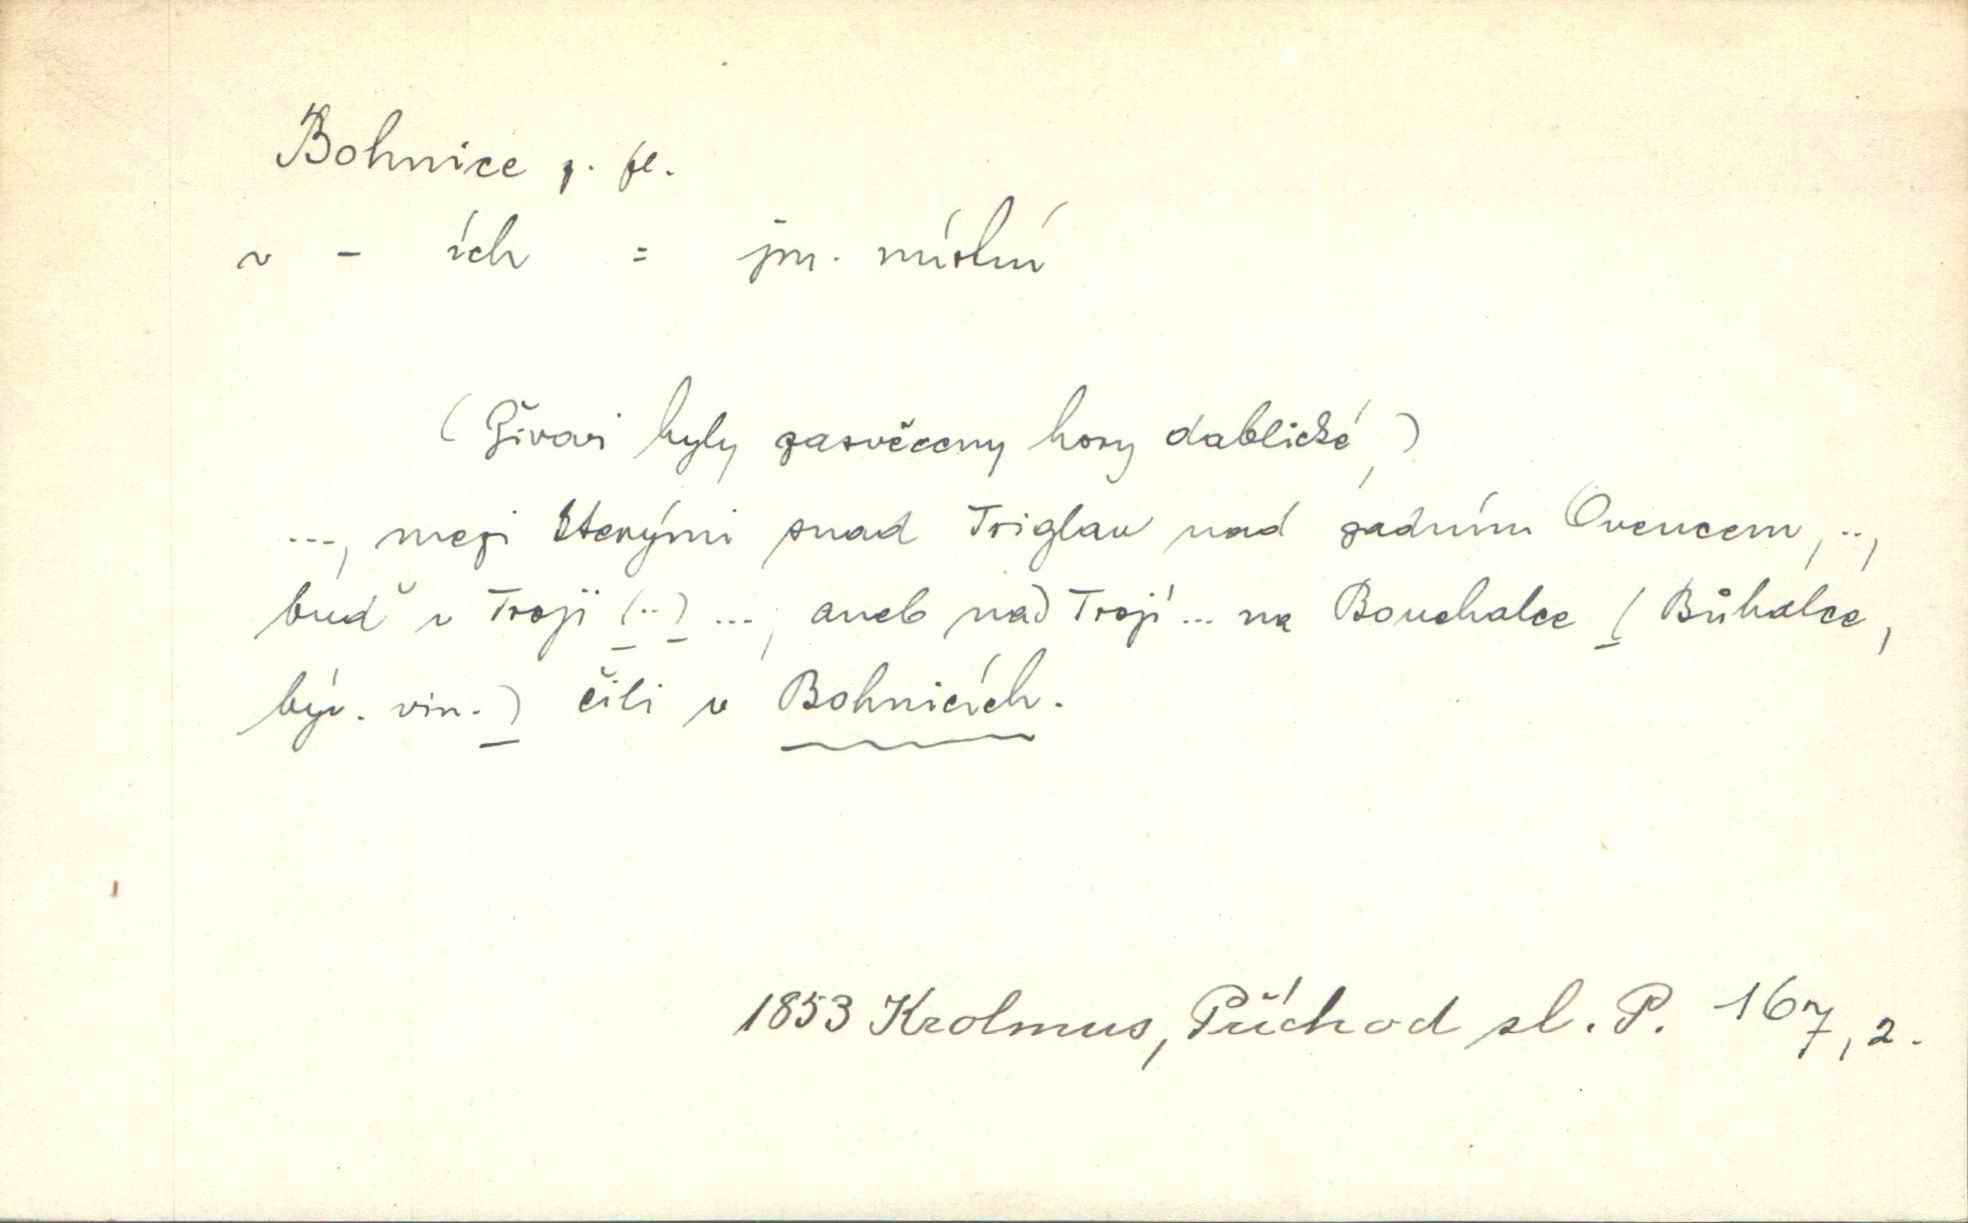 Bohnice p. pl.
v - ích = jm. místní
(Živovi byly zasvěceny hory dablické,)
..., mezi kterými snad Triglav nad zadním Ovencem, ..,
buď v Troji (..) ..., aneb nad Trojí ... na Bouchalce (Bůhalce,
býv. vin.) čili v Bohnicích.
1853 Krolmus, Příchod sl. P. 167, 2.